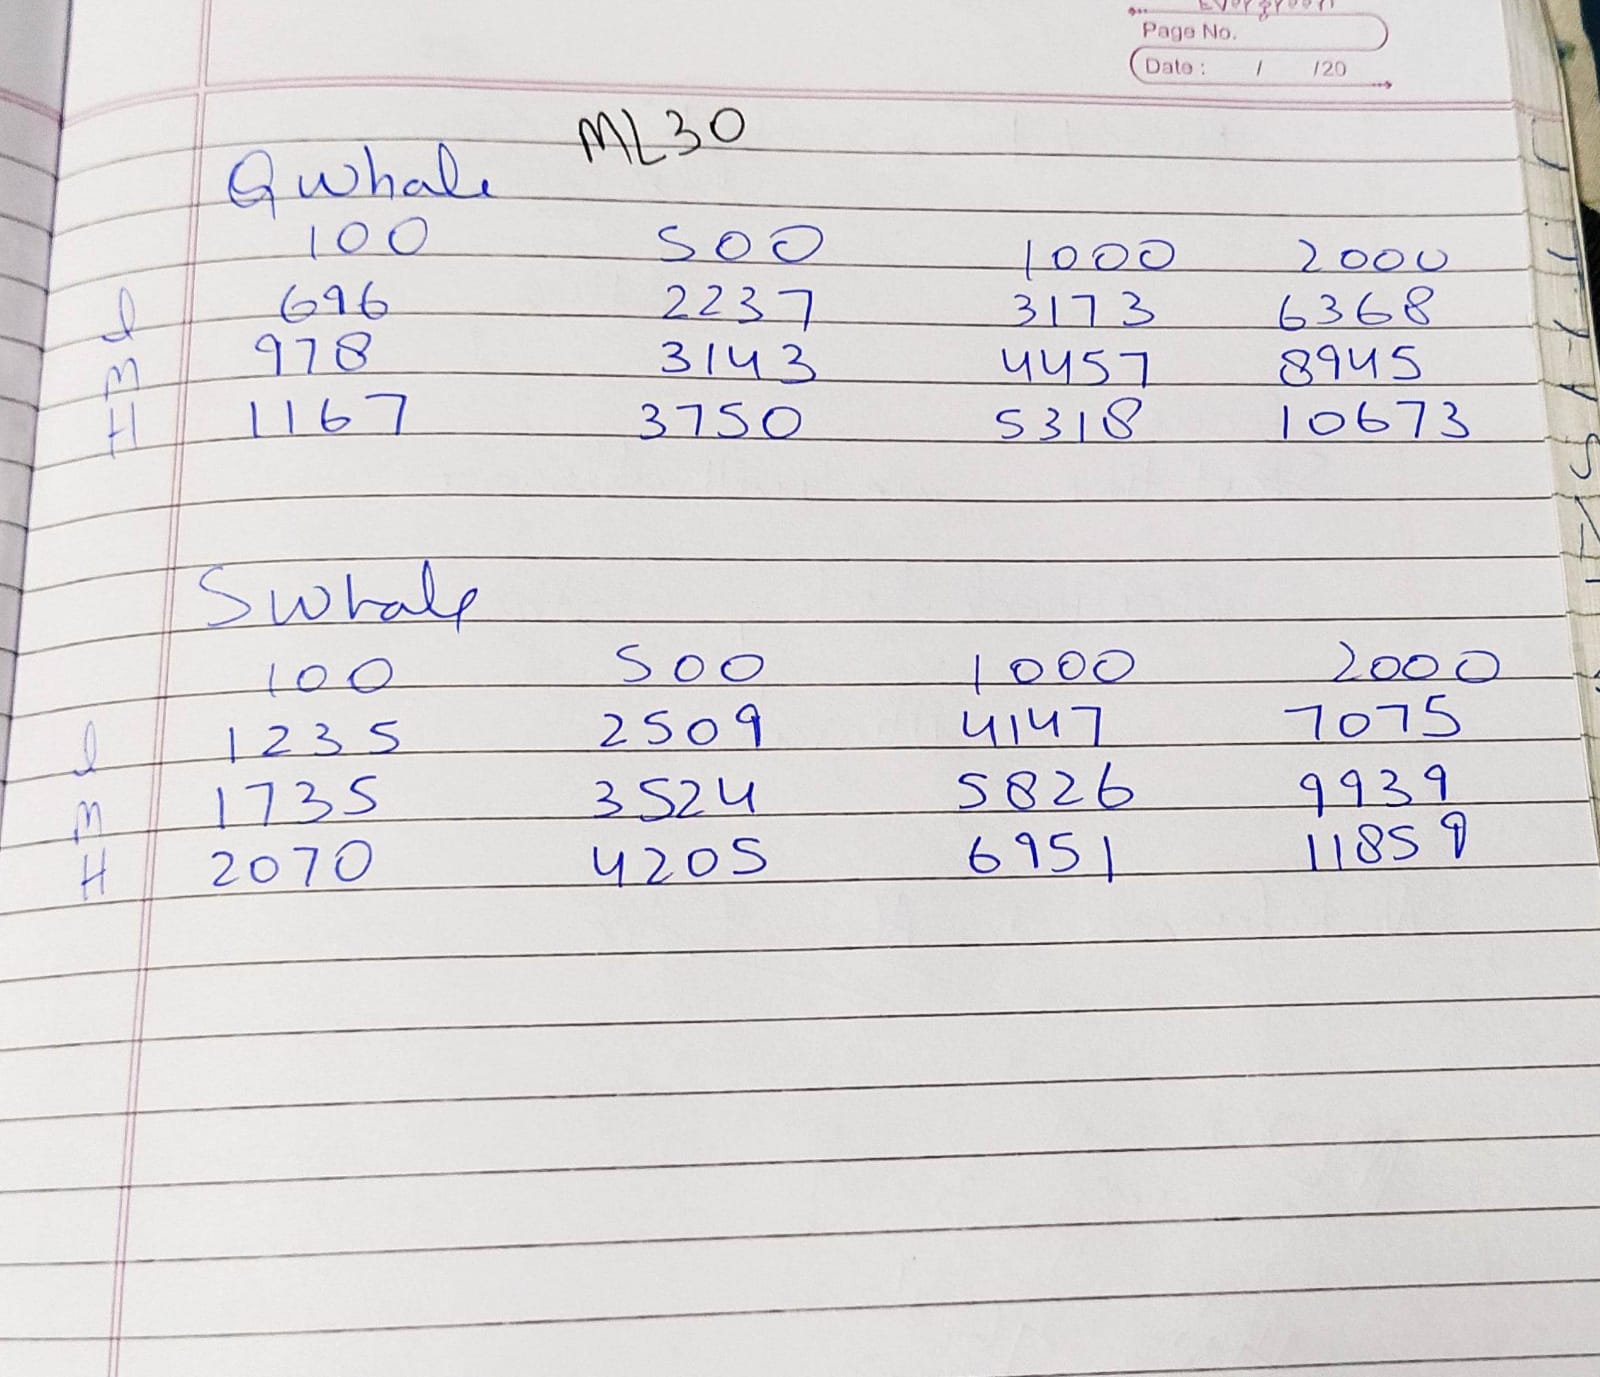 Evergreen
Page No.
Date : / /20
ML30
Qwhale
100 500 1000 2000
l 696 2237 3173 6368
M 978 3143 4457 8945
H 1167 3750 5318 10673
Swhale
100 500 1000 2000
l 1235 2509 4147 7075
M 1735 3524 5826 9939
H 2070 4205 6951 11859